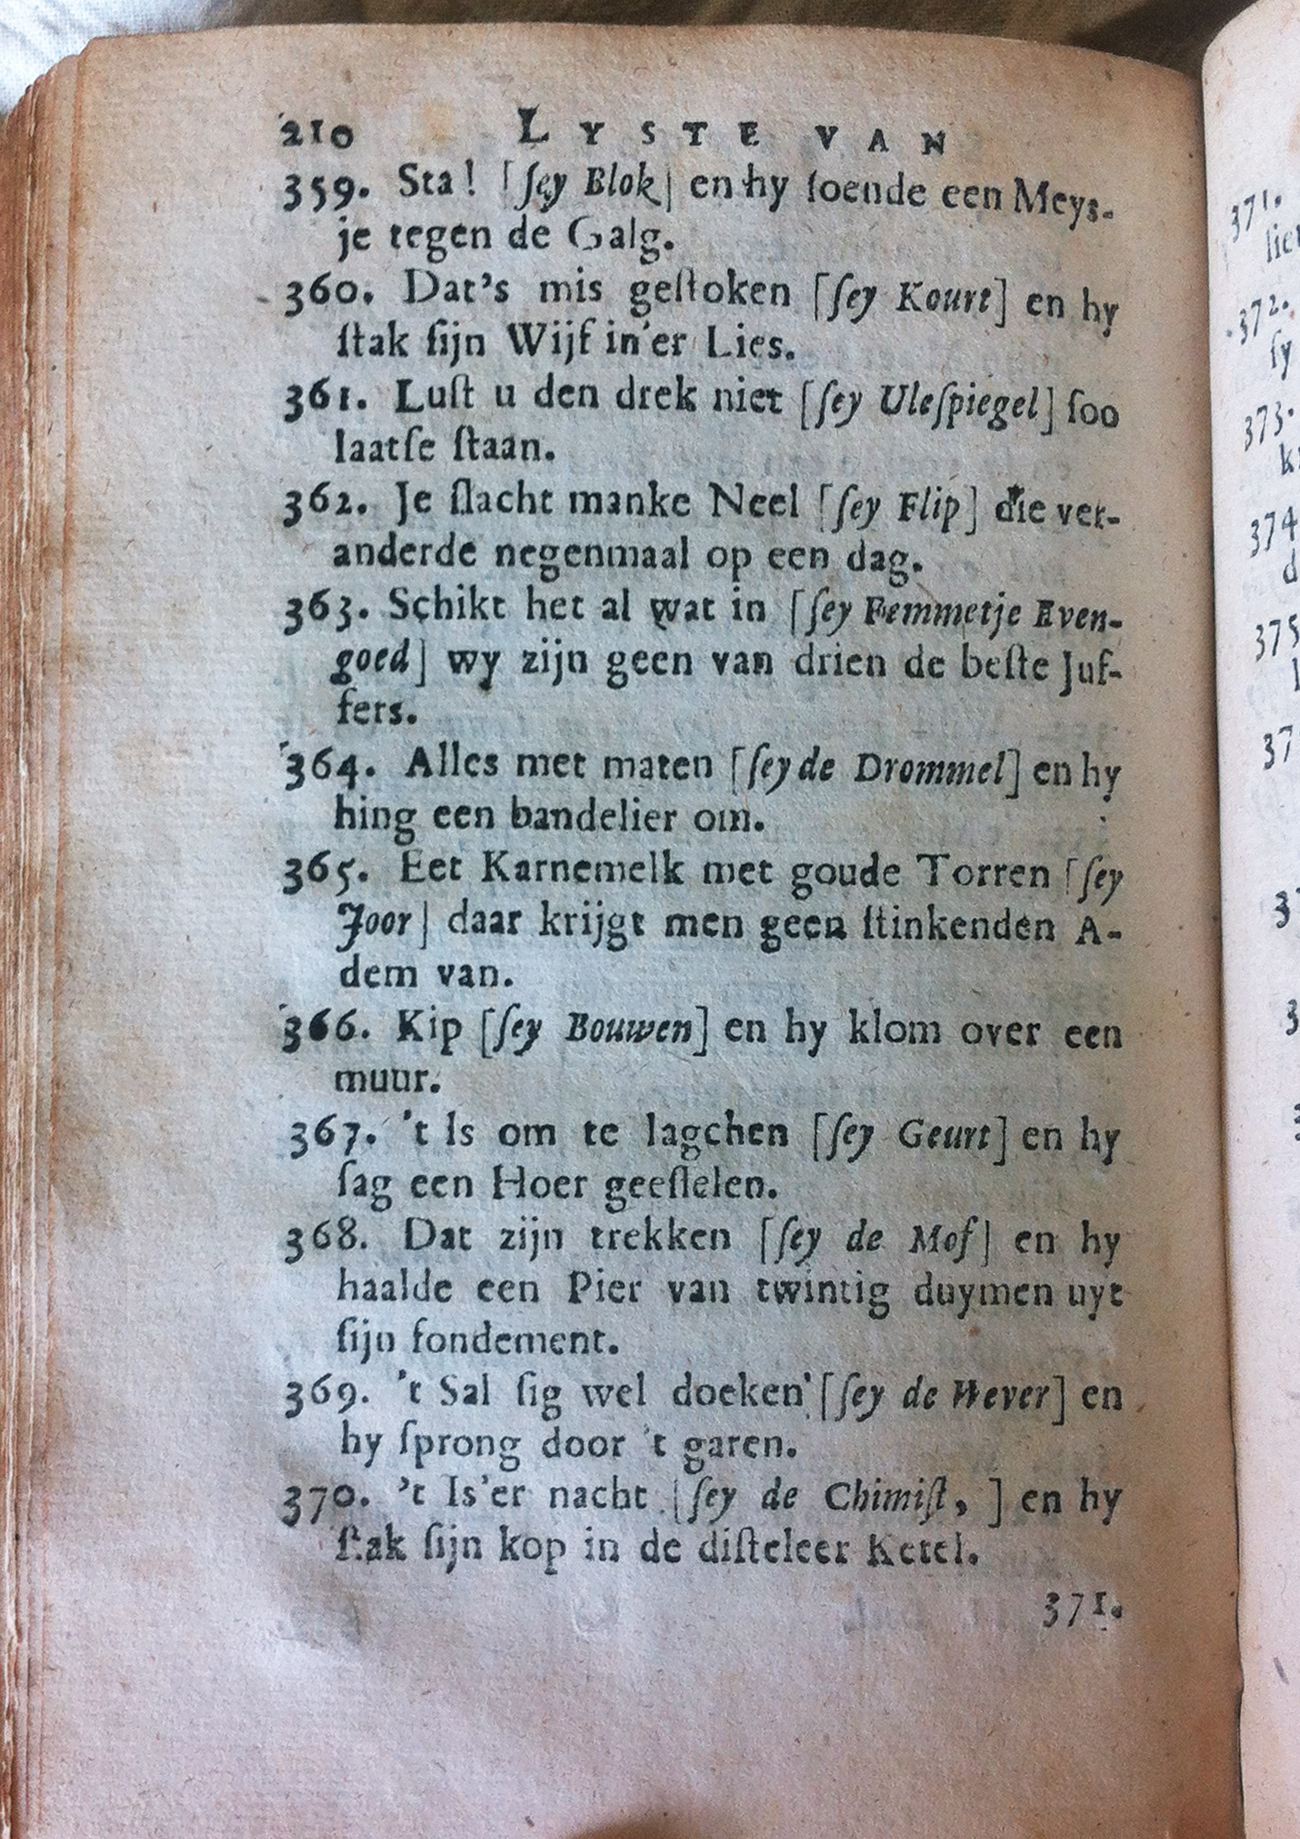 210 LYSTE VAN
359. Sta! [ſey Blok] en hy ſoende een Meys-
je tegen de Galg.
360. Dat's mis geſtoken [ſey Kourt] en hy
ſtak ſijn Wijf in'er Lies.
361. Luſt u den drek niet [ſey Uleſpiegel] ſoo
laatſe ſtaan.
362. Je ſlacht manke Neel [ſey Flip] die ver-
anderde negenmaal op een dag.
363. Schikt het al wat in [ſey Femmetje Even-
goed] wy zijn geen van drien de beſte Juf-
fers.
364. Alles met maten [ſey de Drommel] en hy
hing een bandelier om.
365. Eet Karnemelk met goude Torren [ſey
Joor] daar krijgt men geen ſtinkenden A-
dem van.
366. Kip [ſey Bouwen] en hy klom over een
muur.
367. 't Is om te lagchen [ſey Geurt] en hy
ſag een Hoer geeſlelen.
368. Dat zijn trekken [ſey de Mof] en hy
haalde een Pier van twintig duymen uyt
ſijn fondement.
369. 't Sal ſig wel doeken [ſey de Wever] en
hy ſprong door 't garen.
370. 't Is'er nacht [ſey de Chimiſt, ] en hy
ſtak ſijn kop in de diſteleer Ketel.
371.
371.
372.
ſy
373.
374
d
375
37